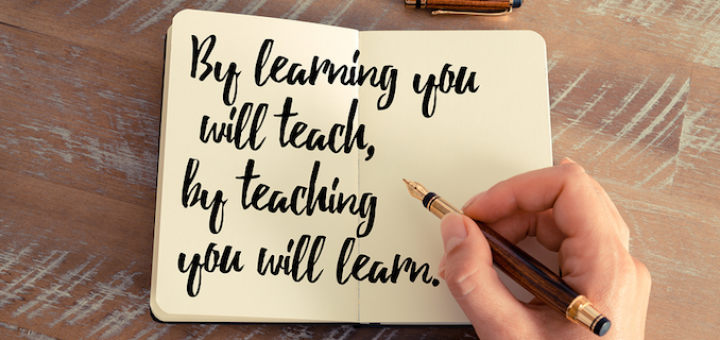 By learning you
will teach,
by teaching
you will learn.